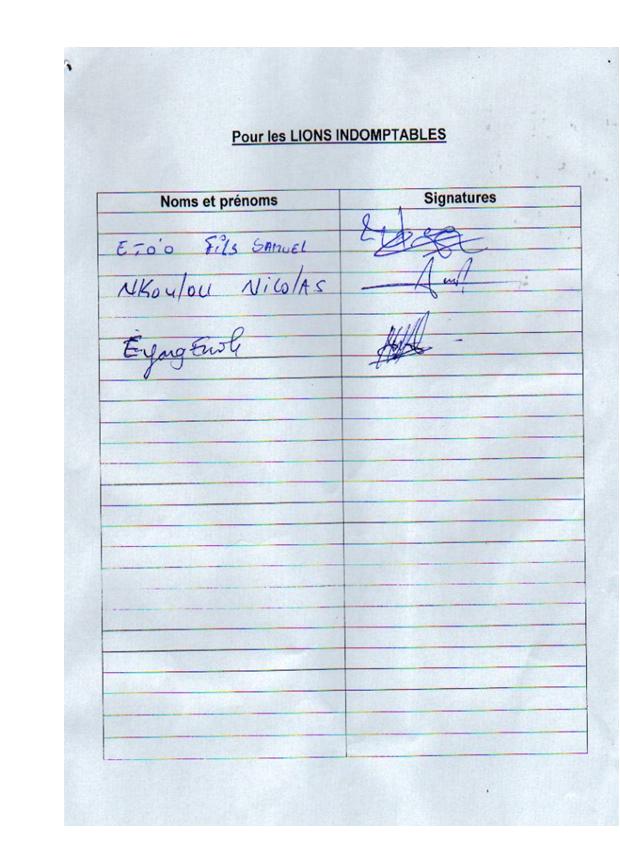 Pour les LIONS INDOMPTABLES
Noms et prénoms Signatures
ETO'O Fils SAMUEL
NKoulou NicolAS
Eyong Enoh